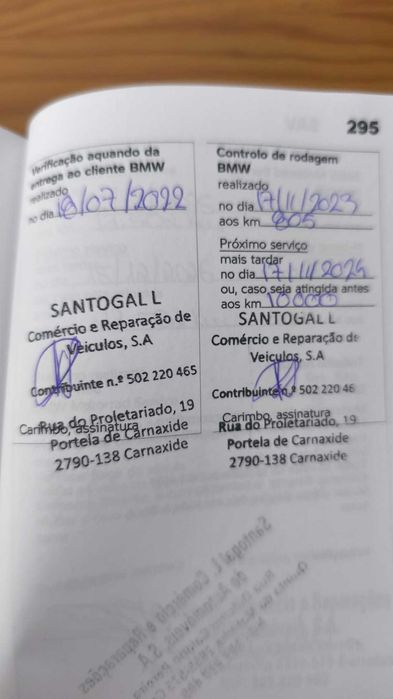 295
Verificação aquando da
entrega ao cliente BMW
realizado
no dia 18/07/2022
SANTOGAL L
Comércio e Reparação de
Veiculos, S.A
Contribuinte n.º 502 220 465
Rua do Proletariado, 19
Carimbo, assinatura
Portela de Carnaxide
2790-138 Carnaxide
Controlo de rodagem
BMW
realizado
no dia 17/11/2023
aos km 805
Próximo serviço
mais tardar
no dia 17/11/2024
ou, caso seja atingida antes
aos km 10000
SANTOGAL L
Comércio e Reparação de
Veiculos, S.A
Contribuinte n.º 502 220 46
Carimbo, assinatura
Rua do Proletariado, 19
Portela de Carnaxide
2790-138 Carnaxide